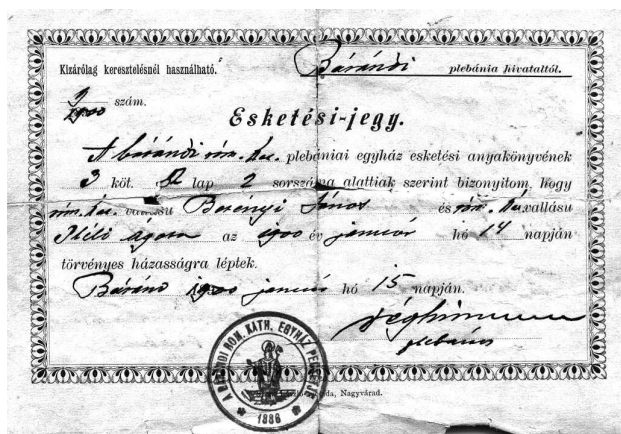 Kizárólag keresztelésnél használható.
Bárándi plebánia hivataltól.
9/1900 szám.
Esketési-jegy.
A bárándi róm. kat. plebániai egyház esketési anyakönyvének
3 köt. lap 2 sorszáma alattiak szerint bizonyitom, hogy
róm. kat. vallásu Berényi János és róm. kat. vallásu
Ágota az 1900 év január hó 14 napján
törvényes házasságra léptek.
Báránd 1900 január hó 15 napján.
plebános
A BÁRÁNDI RÓM. KATH. EGYHÁZ PECSÉTJE
1886
Nagyvárad.